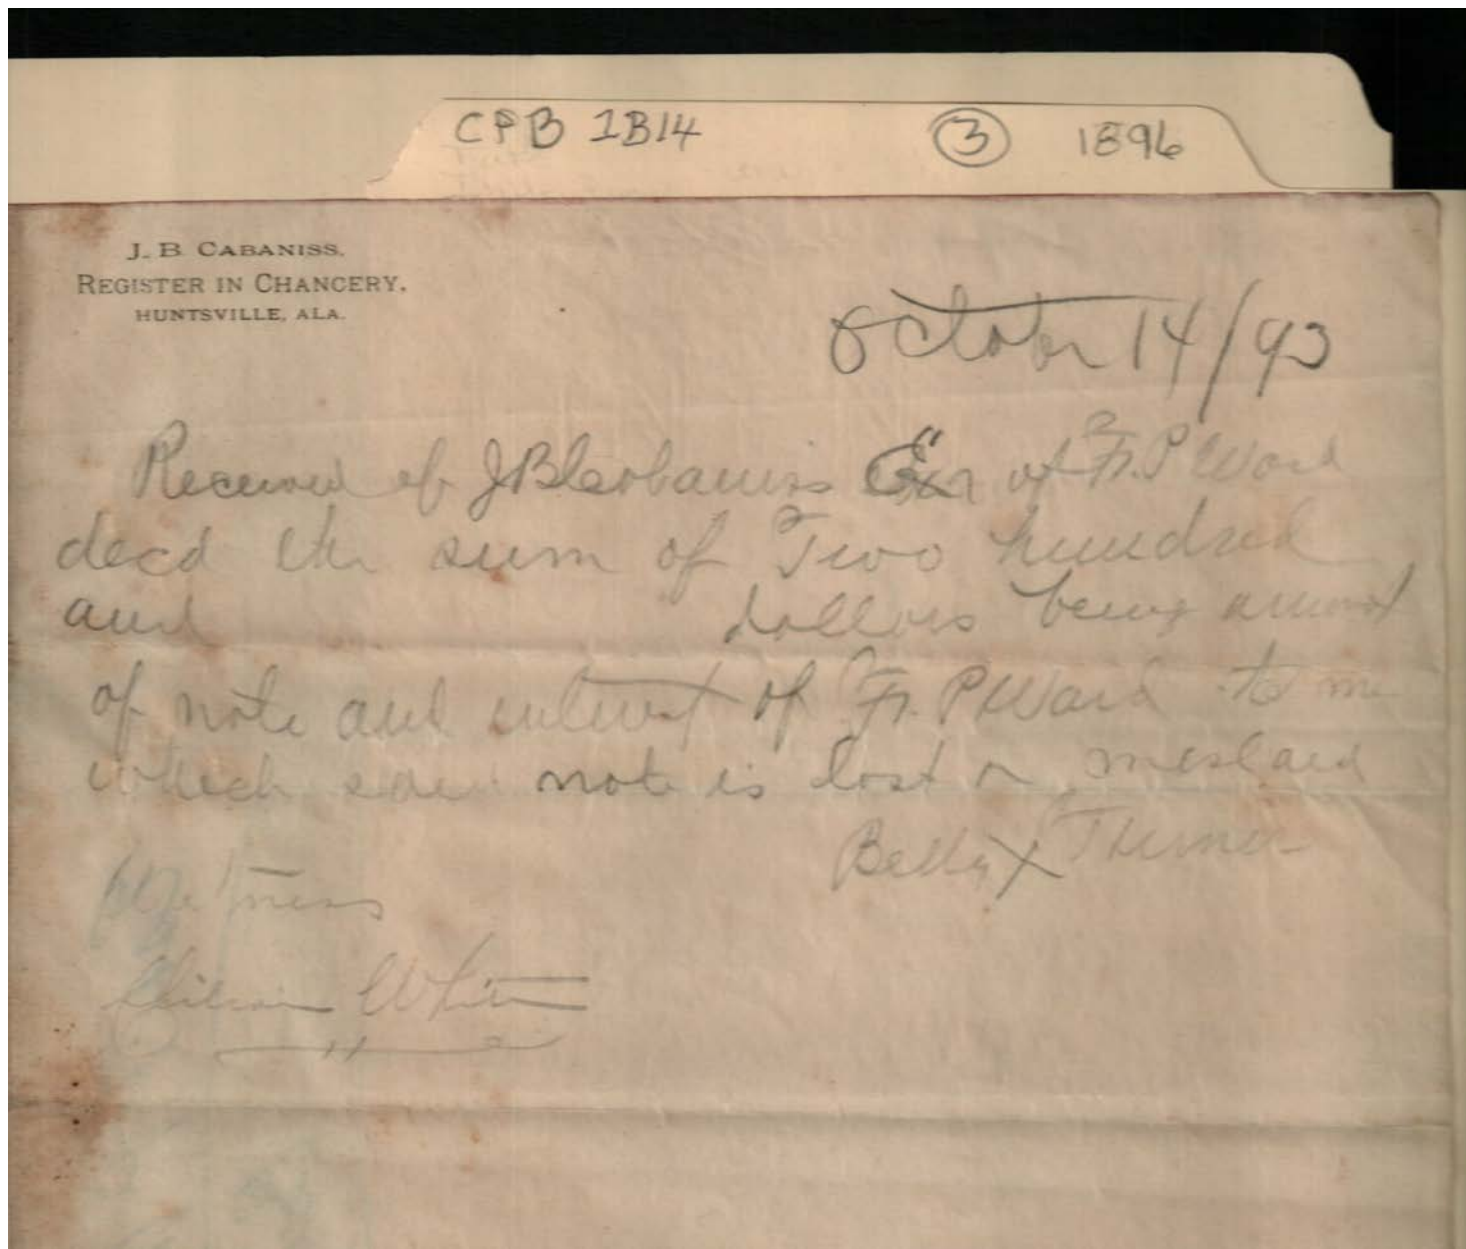 CPB 1B14 3 1896
J. B. CABANISS,
REGISTER IN CHANCERY,
HUNTSVILLE, ALA.
October 14/93
Received of J B Cabaniss Exr of P Ward
decd the sum of Two hundred
and dollars being amount
of note and interest of P Ward to me
which said note is lost or mislaid
Betty X Turner
Witness
White